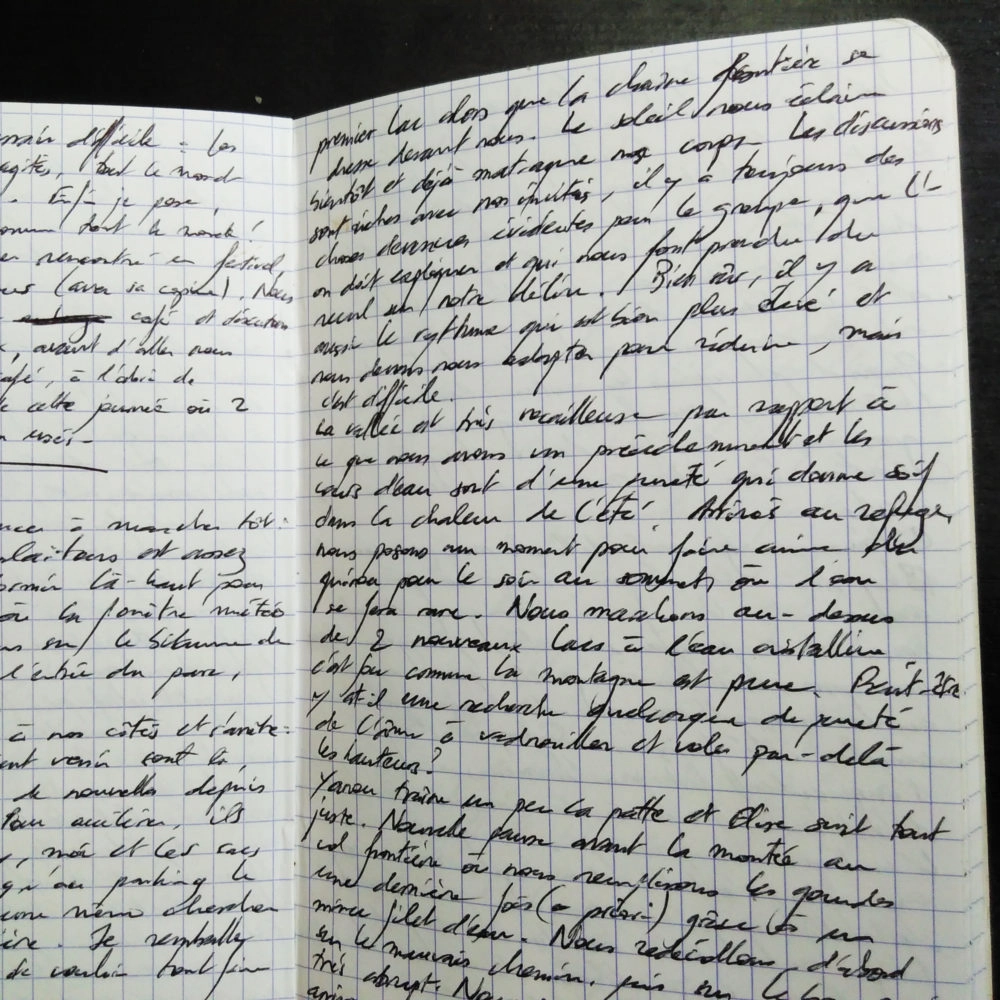 difficile : les
agités, tout le monde
. Et je pose,
comme tout le monde !
rencontré en festival,
(avec sa copine). Nous
café et discutons
, avant d'aller nous
café, à l'abri de
cette journée où 2
usés -
à marcher tôt :
est assez
dormir là-haut pour
où la fenêtre météo
sur le bitume de
l'entrée du parc,
à nos côtés et s'arrête :
sont là,
de nouvelles depuis
Pour accélérer, ils
, moi et les sacs
qu'au parking le
chercher
. Je remballe
de vouloir tout
premier lac alors que la chaîne frontière se
dresse devant nous. Le soleil nous éclaire
bientôt et déjà mat-raque nos corps. Les discussions
sont riches avec nos invités, il y a toujours des
choses devenues évidentes pour le groupe, que l'-
on doit expliquer et qui nous font prendre du
recul sur notre délire. Bien sûr, il y a
aussi le rythme qui est bien plus élevé et
nous devons nous adapter pour réduire, mais
c'est difficile.
La vallée est très rocailleuse par rapport à
ce que nous avons vu précédemment et les
cours d'eau sont d'une pureté qui donne soif
dans la chaleur de l'été. Arrivés au refuge,
nous posons un moment pour faire cuire du
quinoa pour le soir au sommet, où l'eau
se fera rare. Nous marchons au-dessus
de 2 nouveaux lacs à l'eau cristalline
c'est fou comme la montagne est pure. Peut-être
y at-il une recherche quelconque de pureté
de l'âme à vadrouiller et voler par-delà
les hauteurs ?
Yanou traîne un peu la patte et Elise suit tout
juste. Nouvelle pause avant la montée au
col frontière où nous remplissons les gourdes
une dernière fois (a priori) grâce à un
mince filet d'eau. Nous redécollons, d'abord
sur le mauvais chemin, puis sur le
très abrupt.